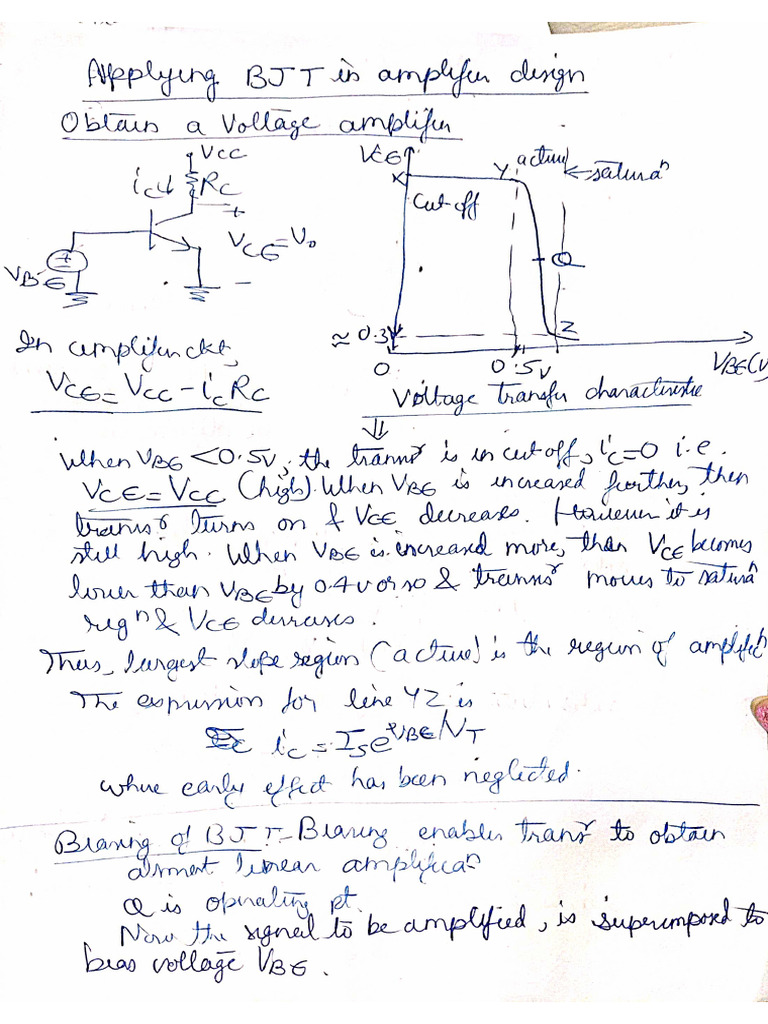 Applying BJT in amplifier design
Obtain a Voltage amplifier
VCC
iC↓ RC
+
VCE=Vo
VBE
+
−
VCE
X
Y
active
← saturaⁿ
Cut off
Q
≈ 0.3V
Z
0
0.5V
VBE(V)
Voltage transfer characteristic
⇓
In amplifier ckt,
VCE = VCC − iCRC
When VBE < 0.5V, the transʳ is in cut off, iC=0 i.e.
VCE = VCC (high). When VBE is increased further, then
transʳ turns on & VCE decreases. However it is
still high. When VBE is increased more, than VCE becomes
lower than VBE by 0.4V or so & transʳ moves to saturaⁿ
regⁿ & VCE decreases.
Thus, largest slope region (active) is the region of amplifⁿ
The expression for line YZ is
iC = IS e^VBE/VT
where early effect has been neglected.
Biasing of BJT:- Biasing enables transʳ to obtain
almost linear amplificaⁿ
Q is operating pt.
Now the signal to be amplified, is superimposed to
bias voltage VBE.